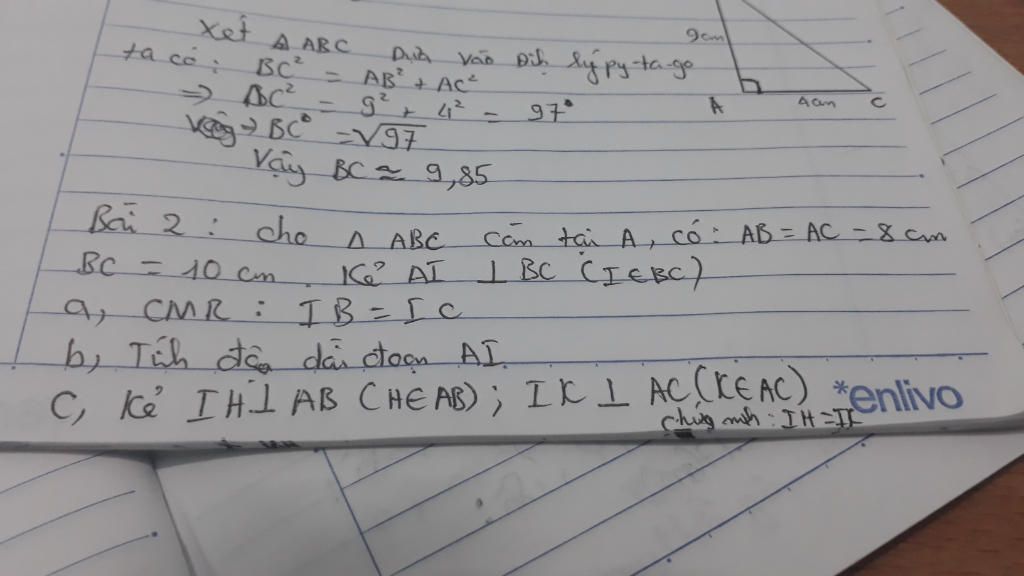 9cm
A 4cm C
Xét Δ ABC Dựa vào Định lý py-ta-go
ta có: BC² = AB² + AC²
=> BC² = 9² + 4² = 97
=> BC = √97
Vậy BC ≈ 9,85
Bài 2 : cho Δ ABC cân tại A, có: AB = AC = 8 cm
BC = 10 cm. Kẻ AI ⊥ BC (I∈BC)
a, CMR : IB = IC
b, Tính độ dài đoạn AI
C, Kẻ IH ⊥ AB (H∈AB); IK ⊥ AC (K∈AC)
chứng minh : IH = IK
*enlivo